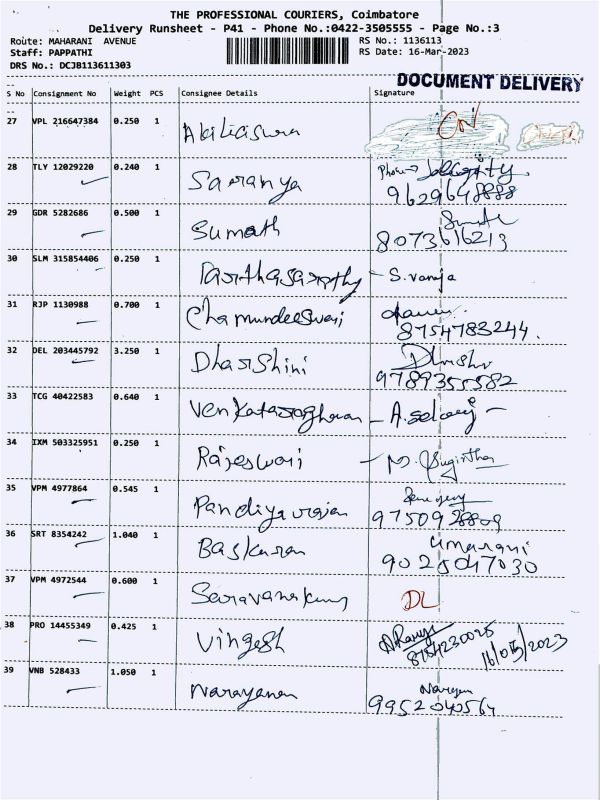 THE PROFESSIONAL COURIERS, Coimbatore
Delivery Runsheet - P41 - Phone No.:0422-3505555 - Page No.:3
Route: MAHARANI AVENUE RS No.: 1136113
Staff: PAPPATHI RS Date: 16-Mar-2023
DRS No.: DCJB113611303
DOCUMENT DELIVERY
S No Consignment No Weight PCS Consignee Details Signature
27 VPL 216647384 0.250 1
28 TLY 12029220 0.240 1 Saranya Phone
9629648888
29 GDR 5282686 0.500 1 Sumath
8073616213
30 SLM 315854406 0.250 1 Parthasarathy - S. vanaja
31 RJP 1130988 0.700 1 Chamundeeswari
8754783244.
32 DEL 203445792 3.250 1 Dharshini
9789355582
33 TCG 40422583 0.640 1 Venkataraghavan - A. selvaraj -
34 IXM 503325951 0.250 1 Rajeswari -
35 VPM 4977864 0.545 1 Pandiyarajan
9750928809
36 SRT 8354242 1.040 1 Baskaran Umarani
9025047030
37 VPM 4972544 0.600 1 DL
38 PRO 14455349 0.425 1 Vingesh
8754230025
39 VNB 528433 1.050 1 Narayanan Narayan
9952040564